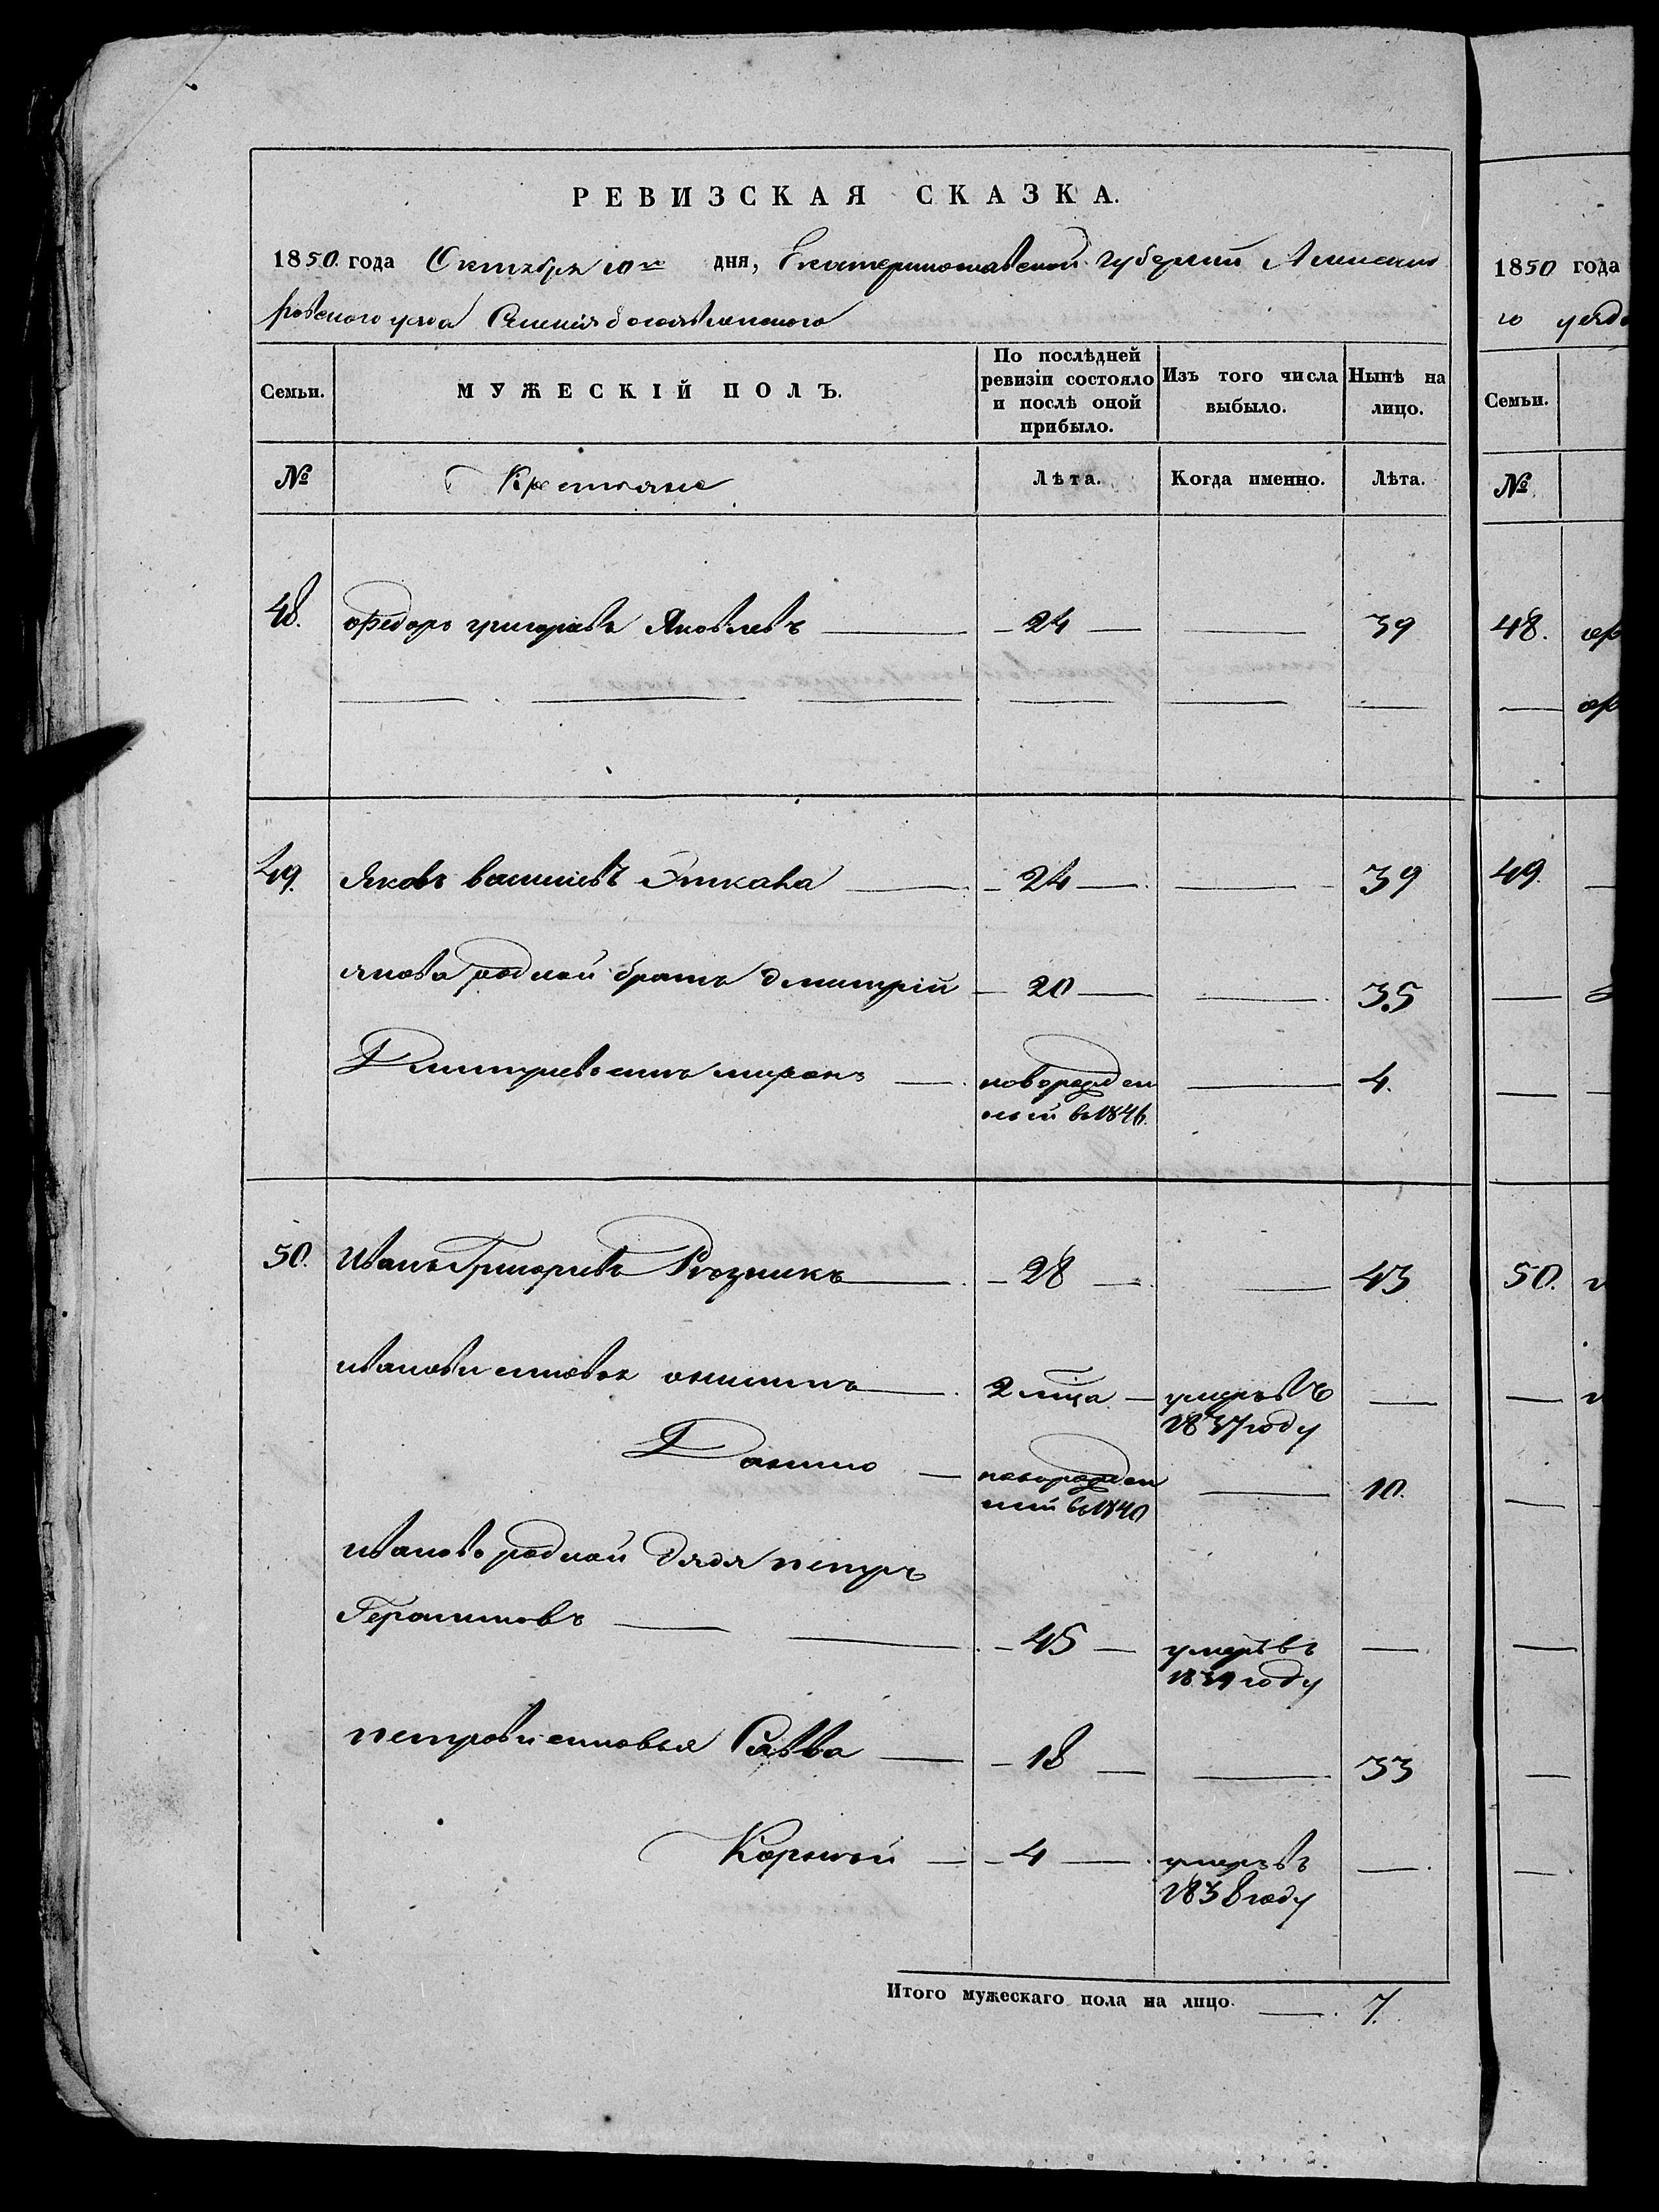 РЕВИЗСКАЯ СКАЗКА.
1850 года Октября 10го дня, Екатеринославской губернии Александ
ровского уезда Селения Богоявленского
Семьи.
МУЖЕСКІЙ ПОЛЪ.
По послѣдней
ревизіи состояло
и послѣ оной
прибыло.
Изъ того числа
выбыло.
Нынѣ на
лицо.
№
Крестьяне
Лѣта.
Когда именно.
Лѣта.
48. Федоръ григорьевъ Яковлевъ — 24 — — 39
49. Яковъ васильевъ — 24 — — 39
якова родной братъ дмитрій — 20 — — 35
Дмитриевъ сынъ миронъ — новорожден — 4.
ный въ 1846.
50. Иванъ Григорьевъ Резникъ — 28 — — 43
ивановы сыновья — 2 мца — умеръ въ —
1837 году
Данило — новорожден — 10.
ный въ 1840
иванова родной дядя петръ
Герасимовъ — 45 — умеръ въ —
году
петровы сыновья Савва — 18 — — 33
Корнѣй — 4 — умеръ въ —
1838 году
Итого мужескаго пола на лицо. — 7.
1850 года
го уезд
Семьи.
№
48.
49.
50.